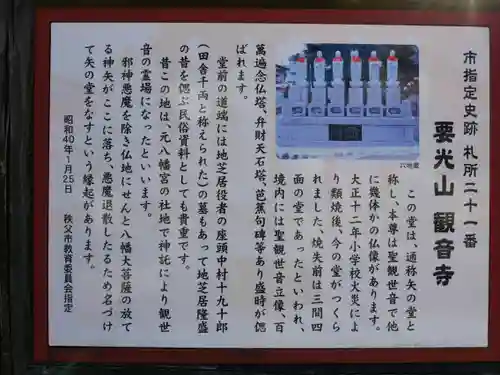 市指定史跡 札所二十一番
要光山 観音寺
この堂は、通称矢の堂と
称し、本尊は聖観世音で他
に幾体かの仏像があります。
大正十二年小学校火災によ
り類焼後、今の堂がつくら
れました、焼失前は三間四
面の堂であったといわれ、
境内には聖観世音立像、百
萬遍念仏塔、弁財天石塔、芭蕉句碑等あり盛時が偲
ばれます。
堂前の道端には地芝居役者の座頭中村十九十郎
(田舎千両と称えられた)の墓もあって地芝居隆盛
の昔を偲ぶ民俗資料としても貴重です。
昔この地は、元八幡宮の社地で神託により観世
音の霊場になったといいます。
邪神悪魔を除き仏地にせんと八幡大菩薩の放て
る神矢がここに落ち、悪魔退散したるため名づけ
て矢の堂をなすという縁起があります。
昭和40年1月25日 秩父市教育委員会指定
穴地蔵